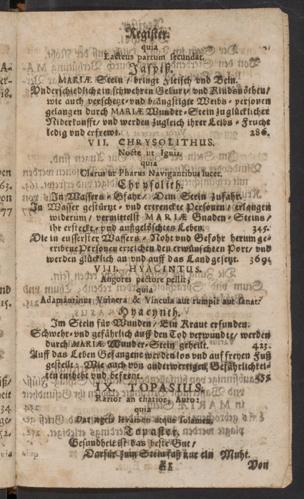 Register.
quia
Lacteus partum secundat.
Jaspiß.
MARIÆ Stein / bringt Fleisch und Bein.
Underschiedliche in schwehren Geburt- und Kindsnöthen /
wie auch verschertz- und beängstigte Weibs-personen
gelangen durch MARIÆ Wunder-Stein zu glücklicher
Niderkunfft / und werden zugleich ihrer Leibs-Frucht
ledig und erfrewt. 286.
VII. CHRYSOLITHUS.
Nocte ut Ignis,
quia
Clarus ut Pharus Navigantibus lucet.
Chrysolith.
In Wassers-Gfahr / Dem Stein zufahr.
In Wasser gestürtz- und ertrenckte Personen / erlangen
widerum / vermittelst MARIÆ Gnaden-Steins /
ihr ersteckt- und außgelöschtes Leben. 345.
Die in eusserster Wassers-Noht und Gefohr herum ge-
tribene Personen erzielen den erwünschten Port / und
werden glücklich an und auff das Land gesetzt. 369.
VIII. HYACINTUS.
Angores pectore pellit;
quia
Adamantinus Vulnera & Vincula aut rumpit aut sanat.
Hyacynth.
Im Stein für Wunden / Ein Kraut erfunden.
Schwehr- und gefährlich auff den Tod verwundte / werden
durch MARIÆ Wunder-Stein geheilt. 425.
Auff das Leben Gefangene werden los und auf freyen Fuß
gestellt: Wie auch von anderwertigen Gefährlichkei-
ten entheht und befreyt.
IX. TOPASIUS.
Carior an clarior, Auro;
quia
Dat ægris levamen atque solamen.
Topaster.
Gesundheit ist das beste Gut /
Darfür zum Stein faß nur ein Muht.
Von